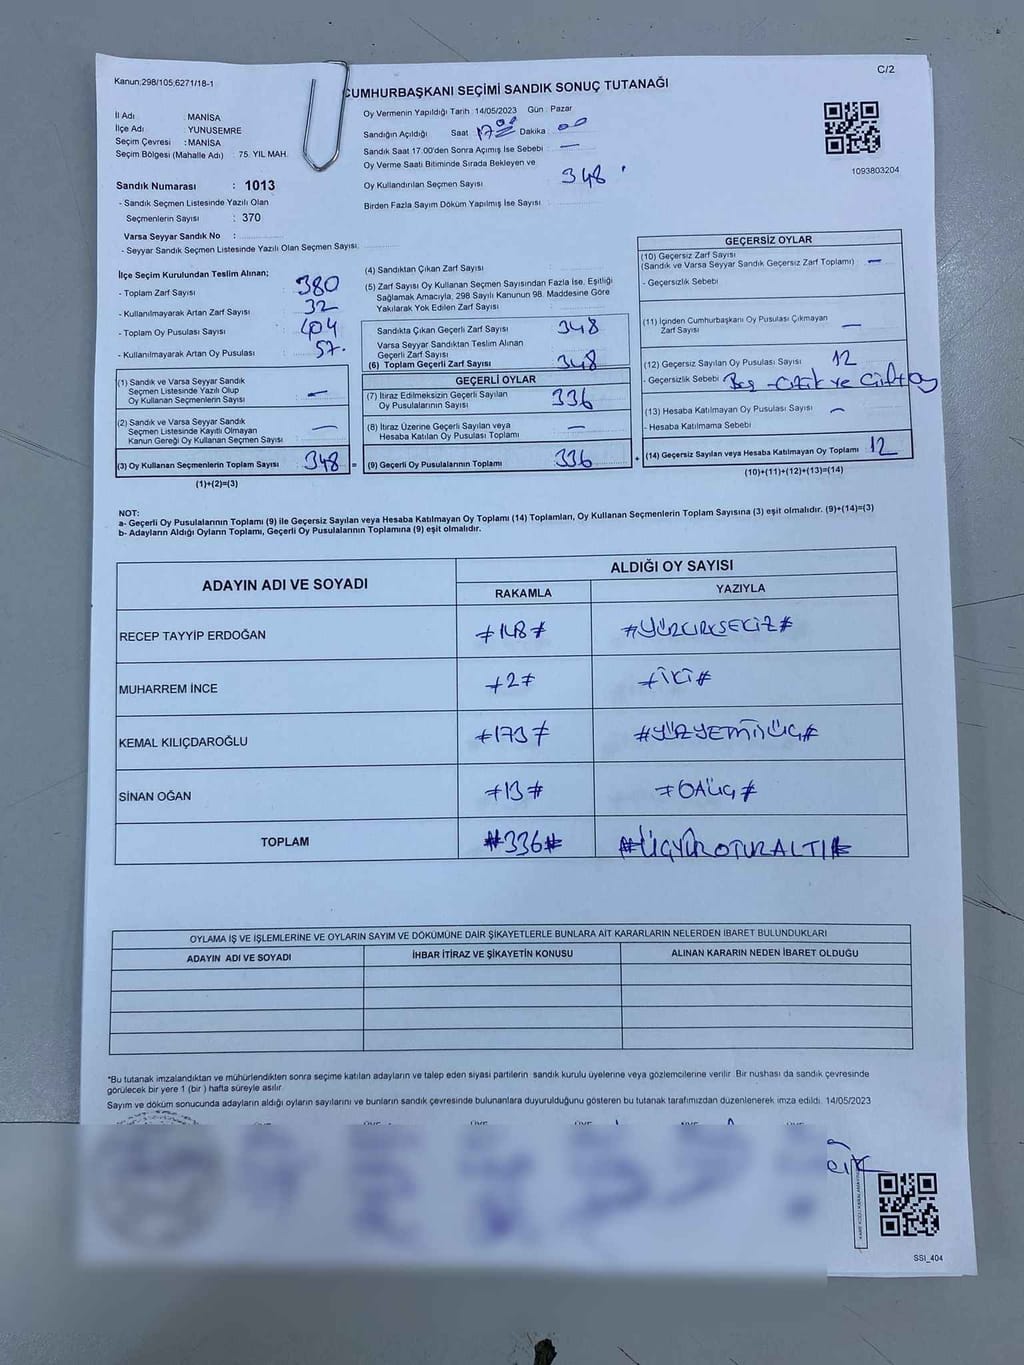 C/2
Kanun:298/105;6271/18-1
CUMHURBAŞKANI SEÇİMİ SANDIK SONUÇ TUTANAĞI
İl Adı : MANİSA
İlçe Adı : YUNUSEMRE
Seçim Çevresi : MANİSA
Seçim Bölgesi (Mahalle Adı) : 75. YIL MAH.
Oy Vermenin Yapıldığı Tarih : 14/05/2023 Gün : Pazar
Sandığın Açıldığı Saat 17 00 Dakika 00
Sandık Saat 17.00'den Sonra Açımış İse Sebebi : —
Oy Verme Saati Bitiminde Sırada Bekleyen ve
Oy Kullandırılan Seçmen Sayısı 348
Birden Fazla Sayım Döküm Yapılmış İse Sayısı :
1093803204
Sandık Numarası : 1013
- Sandık Seçmen Listesinde Yazılı Olan
Seçmenlerin Sayısı : 370
Varsa Seyyar Sandık No :
- Seyyar Sandık Seçmen Listesinde Yazılı Olan Seçmen Sayısı
İlçe Seçim Kurulundan Teslim Alınan;
- Toplam Zarf Sayısı : 380
- Kullanılmayarak Artan Zarf Sayısı : 32
- Toplam Oy Pusulası Sayısı : 404
- Kullanılmayarak Artan Oy Pusulası : 57.
(1) Sandık ve Varsa Seyyar Sandık
Seçmen Listesinde Yazılı Olup
Oy Kullanan Seçmenlerin Sayısı : —
(2) Sandık ve Varsa Seyyar Sandık
Seçmen Listesinde Kayıtlı Olmayan
Kanun Gereği Oy Kullanan Seçmen Sayısı : —
(3) Oy Kullanan Seçmenlerin Toplam Sayısı 348 =
(1)+(2)=(3)
(4) Sandıktan Çıkan Zarf Sayısı :
(5) Zarf Sayısı Oy Kullanan Seçmen Sayısından Fazla İse, Eşitliği
Sağlamak Amacıyla, 298 Sayılı Kanunun 98. Maddesine Göre
Yakılarak Yok Edilen Zarf Sayısı :
Sandıkta Çıkan Geçerli Zarf Sayısı 348
Varsa Seyyar Sandıktan Teslim Alınan
Geçerli Zarf Sayısı
(6) Toplam Geçerli Zarf Sayısı 348
GEÇERLİ OYLAR
(7) İtiraz Edilmeksizin Geçerli Sayılan
Oy Pusulalarının Sayısı : 336
(8) İtiraz Üzerine Geçerli Sayılan veya
Hesaba Katılan Oy Pusulası Toplamı : —
(9) Geçerli Oy Pusulalarının Toplamı 336 +
GEÇERSİZ OYLAR
(10) Geçersiz Zarf Sayısı
(Sandık ve Varsa Seyyar Sandık Geçersiz Zarf Toplamı) : —
- Geçersizlik Sebebi
(11) İçinden Cumhurbaşkanı Oy Pusulası Çıkmayan
Zarf Sayısı : —
(12) Geçersiz Sayılan Oy Pusulası Sayısı : 12
- Geçersizlik Sebebi Boş - Çizik ve Çift oy
(13) Hesaba Katılmayan Oy Pusulası Sayısı : —
- Hesaba Katılmama Sebebi
(14) Geçersiz Sayılan veya Hesaba Katılmayan Oy Toplamı : 12
(10)+(11)+(12)+(13)=(14)
NOT:
a- Geçerli Oy Pusulalarının Toplamı (9) ile Geçersiz Sayılan veya Hesaba Katılmayan Oy Toplamı (14) Toplamları, Oy Kullanan Seçmenlerin Toplam Sayısına (3) eşit olmalıdır. (9)+(14)=(3)
b- Adayların Aldığı Oyların Toplamı, Geçerli Oy Pusulalarının Toplamına (9) eşit olmalıdır.
ADAYIN ADI VE SOYADI ALDIĞI OY SAYISI
RAKAMLA YAZIYLA
RECEP TAYYİP ERDOĞAN #148# #YÜZKIRKSEKİZ#
MUHARREM İNCE #2# #İKİ#
KEMAL KILIÇDAROĞLU #173# #YÜZYETMİŞÜÇ#
SİNAN OĞAN #13# #ONÜÇ#
TOPLAM #336# #ÜÇYÜZOTUZALTI#
OYLAMA İŞ VE İŞLEMLERİNE VE OYLARIN SAYIM VE DÖKÜMÜNE DAİR ŞİKAYETLERLE BUNLARA AİT KARARLARIN NELERDEN İBARET BULUNDUKLARI
ADAYIN ADI VE SOYADI İHBAR İTİRAZ VE ŞİKAYETİN KONUSU ALINAN KARARIN NEDEN İBARET OLDUĞU
*Bu tutanak imzalandıktan ve mühürlendikten sonra seçime katılan adayların ve talep eden siyasi partilerin sandık kurulu üyelerine veya gözlemcilerine verilir. Bir nüshası da sandık çevresinde
görülecek bir yere 1 (bir ) hafta süreyle asılır.
Sayım ve döküm sonucunda adayların aldığı oyların sayılarını ve bunların sandık çevresinde bulunanlara duyurulduğunu gösteren bu tutanak tarafımızdan düzenlenerek imza edildi. 14/05/2023
SSI_404